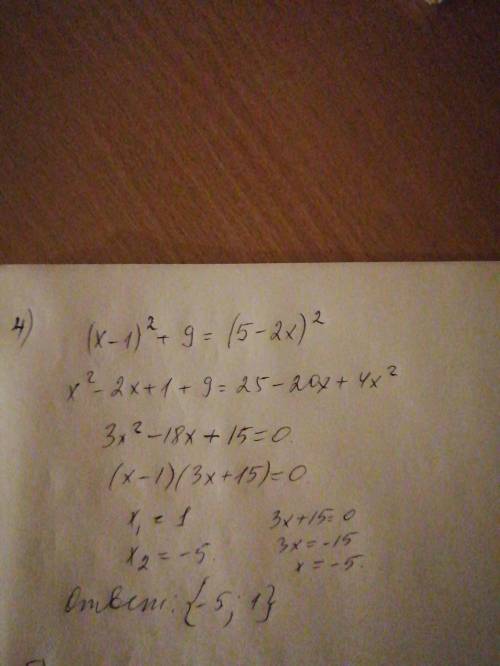 4) (x-1)² + 9 = (5-2x)²
x² - 2x + 1 + 9 = 25 - 20x + 4x²
3x² - 18x + 15 = 0
(x-1)(3x+15) = 0
x₁ = 1 3x+15=0
x₂ = -5. 3x = -15
x = -5.
Ответ: {-5; 1}